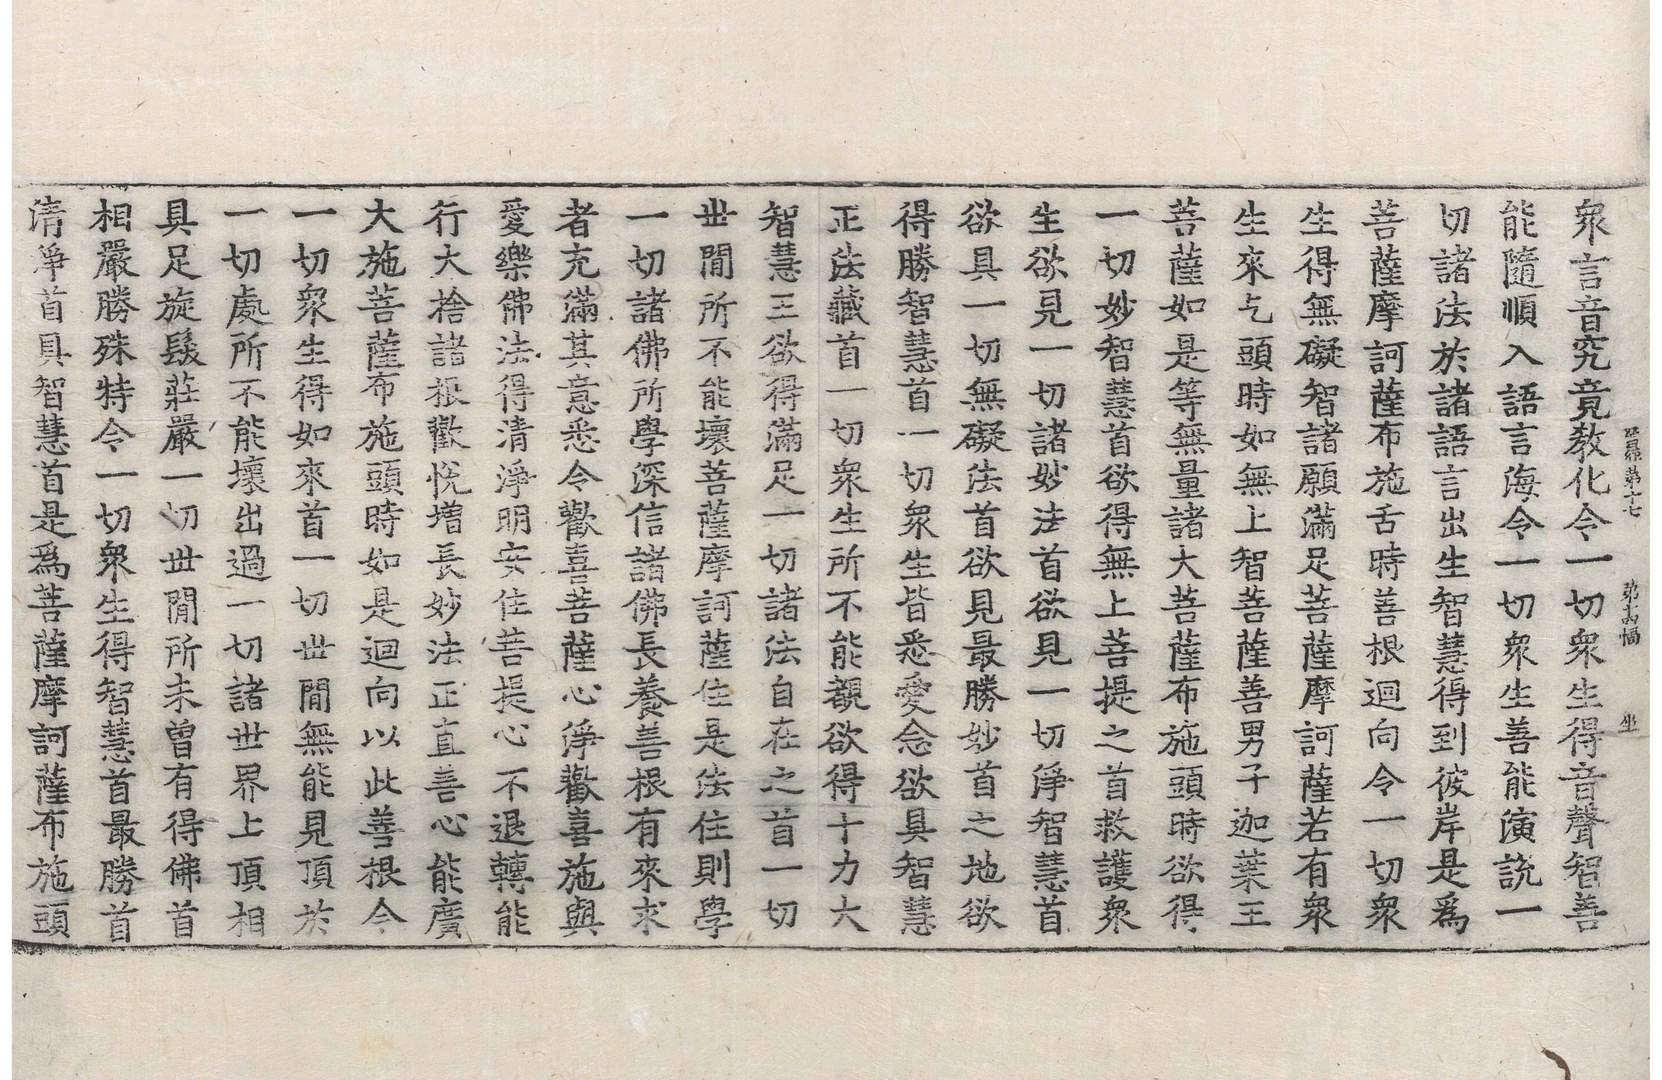 第十七
眾言音究竟教化令一切眾生得音聲智善
能隨順入語言海令一切眾生善能演說一
切諸法於諸語言出生智慧得到彼岸是為
菩薩摩訶薩布施舌時善根迴向令一切眾
生得無礙智諸願滿足菩薩摩訶薩若有眾
生來乞頭時如無上智菩薩善男子迦葉王
菩薩如是等無量諸大菩薩布施頭時欲得
一切妙智慧首欲得無上菩提之首救護眾
生欲見一切諸妙法首欲見一切淨智慧首
欲具一切無礙法首欲見最勝妙首之地欲
得勝智慧首一切眾生皆悉愛念欲具智慧
正法藏首一切眾生所不能覩欲得十力大
智慧王欲得滿足一切諸法自在之首一切
世閒所不能壞菩薩摩訶薩住是法住則學
一切諸佛所學深信諸佛長養善根有來求
者充滿其意悉令歡喜菩薩心淨歡喜施與
愛樂佛法得清淨明安住菩提心不退轉能
行大捨諸根歡悅增長妙法正直善心能廣
大施菩薩布施頭時如是迴向以此善根令
一切眾生得如來首一切世閒無能見頂於
一切處所不能壞出過一切諸世界上頂相
具足旋髮莊嚴一切世閒所未曾有得佛首
相嚴勝殊特令一切眾生得智慧首最勝首
清淨首具智慧首是為菩薩摩訶薩布施頭